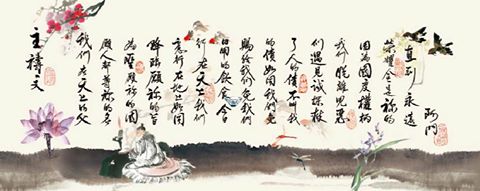 主禱文
我們在天上的父
願人都尊祢的名
為聖願祢的國
降臨願祢的旨
意行在地如同
行在天上我們
日用的飲食今日
賜給我們免我們
的債如同我們免
了人的債不叫我
們遇見試探救
我們脫離兇惡
因為國度權柄
榮耀全是祢的
直到永遠
阿門